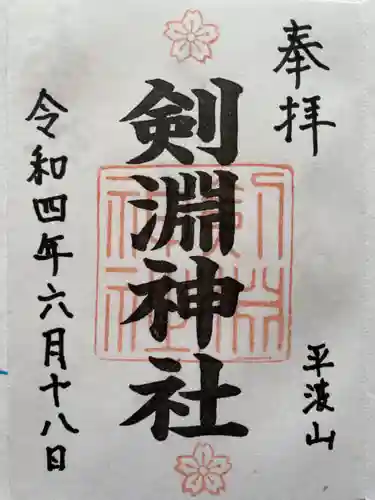 奉拝
平波山
剣淵神社
令和四年六月十八日